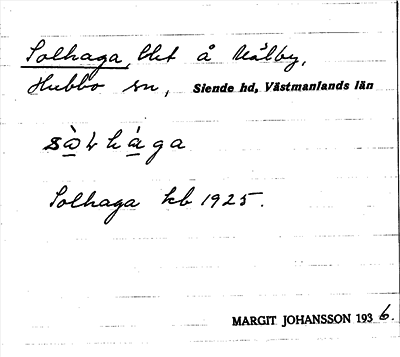 Solhaga, lht å Målby,
Hubbo sn, Siende hd, Västmanlands län
sὰ̱ɬhá̱ga
Solhaga kb 1925.
MARGIT JOHANSSON 1936.